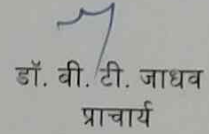 डॉ. बी. टी. जाधव
प्राचार्य